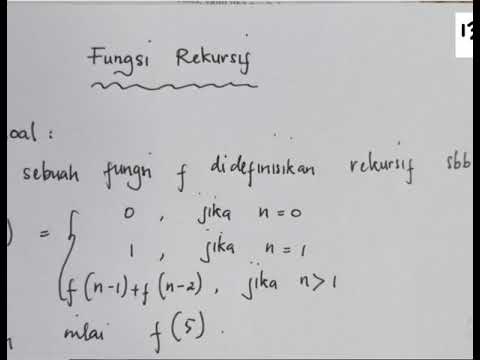 Fungsi Rekursif
soal :
sebuah fungsi f didefinisikan rekursif sbb
) = { 0 , jika n = 0
1 , jika n = 1
f(n-1)+f(n-2) , jika n>1
nilai f(5) .